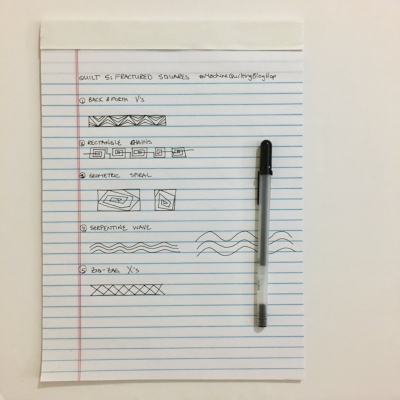 QUILT 51 FRACTURED SQUARES #MachineQuiltingBlogHop
① BACK & FORTH V's
② RECTANGLE CHAINS
③ GEOMETRIC SPIRAL
④ SERPENTINE WAVE
⑤ ZIG-ZAG X's